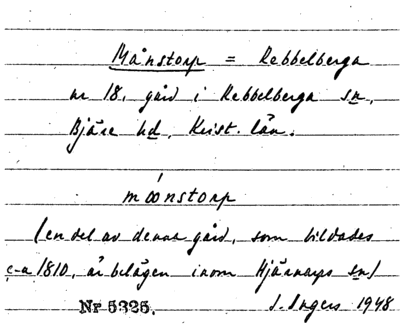 Månstorp = Rebbelberga
nr 18, gård i Rebbelberga sn,
Bjäre hd, Krist. län.
móonstorp
(en del av denna gård, som bildades
c-a 1810, är belägen inom Hjärnarps sn)
Nr 5325. I. Ingers 1948